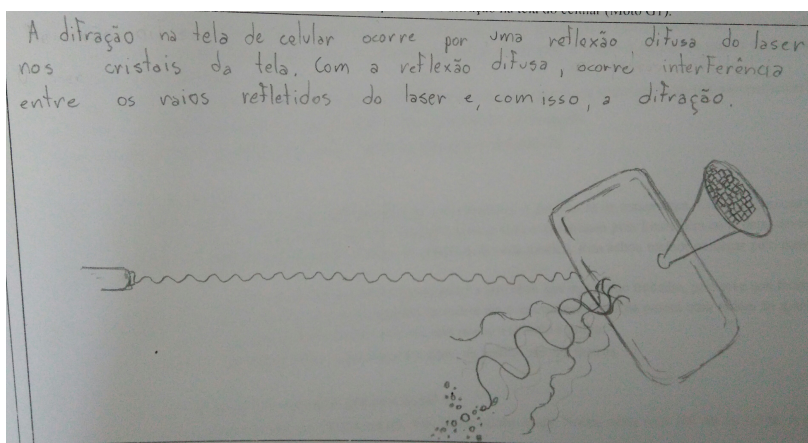 na tela do celular (Moto G1).
A difração na tela de celular ocorre por uma reflexão difusa do laser
nos cristais da tela. Com a reflexão difusa, ocorre interferência
entre os raios refletidos do laser e, com isso, a difração.